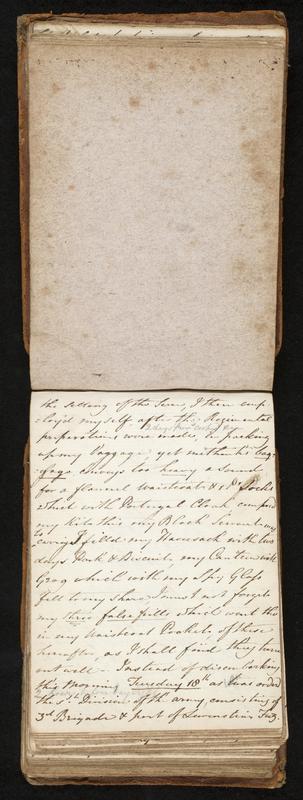 the setting of the Sun, I then emp-
cloy'd myself after the Regimental
preparations were made, in packing
up my baggage, yet methinks bag-
gage conveys too heavy a sound
for a flannel waistcoat &
which with Portugal Cloak comprised
my kit this my Black Servant was to
carry I fill'd my Haversack with two
days Pork & Biscuit, my Canteen with
Grog which with my Spy Glass
fell to my share I must not forget
my three false frills which went
in my Waistcoat Pockets of these
hereafter as I shall find they turn
out well - Instead of disembarking
this morning Tuesday 18th as was order'd
the Division of the army, consisting of
3rd Brigade & part of